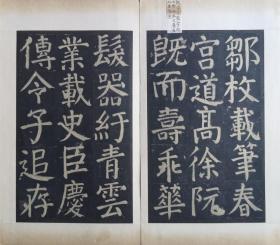 鄒枚載筆春
宮道高徐阮
旣而壽乖華
髮器紆青雲
業載史臣慶
傳令子追存